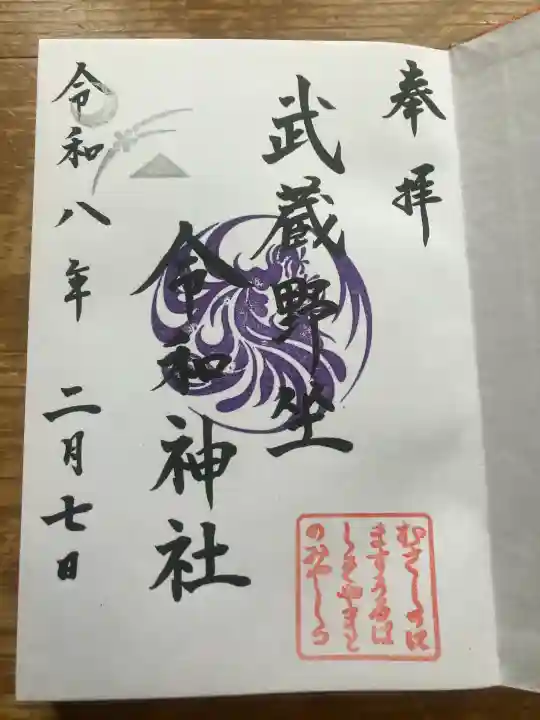 奉拝
武蔵野坐
令和神社
令和八年 二月七日
むさしのに
ますうるは
しきやまと
のみやしろ